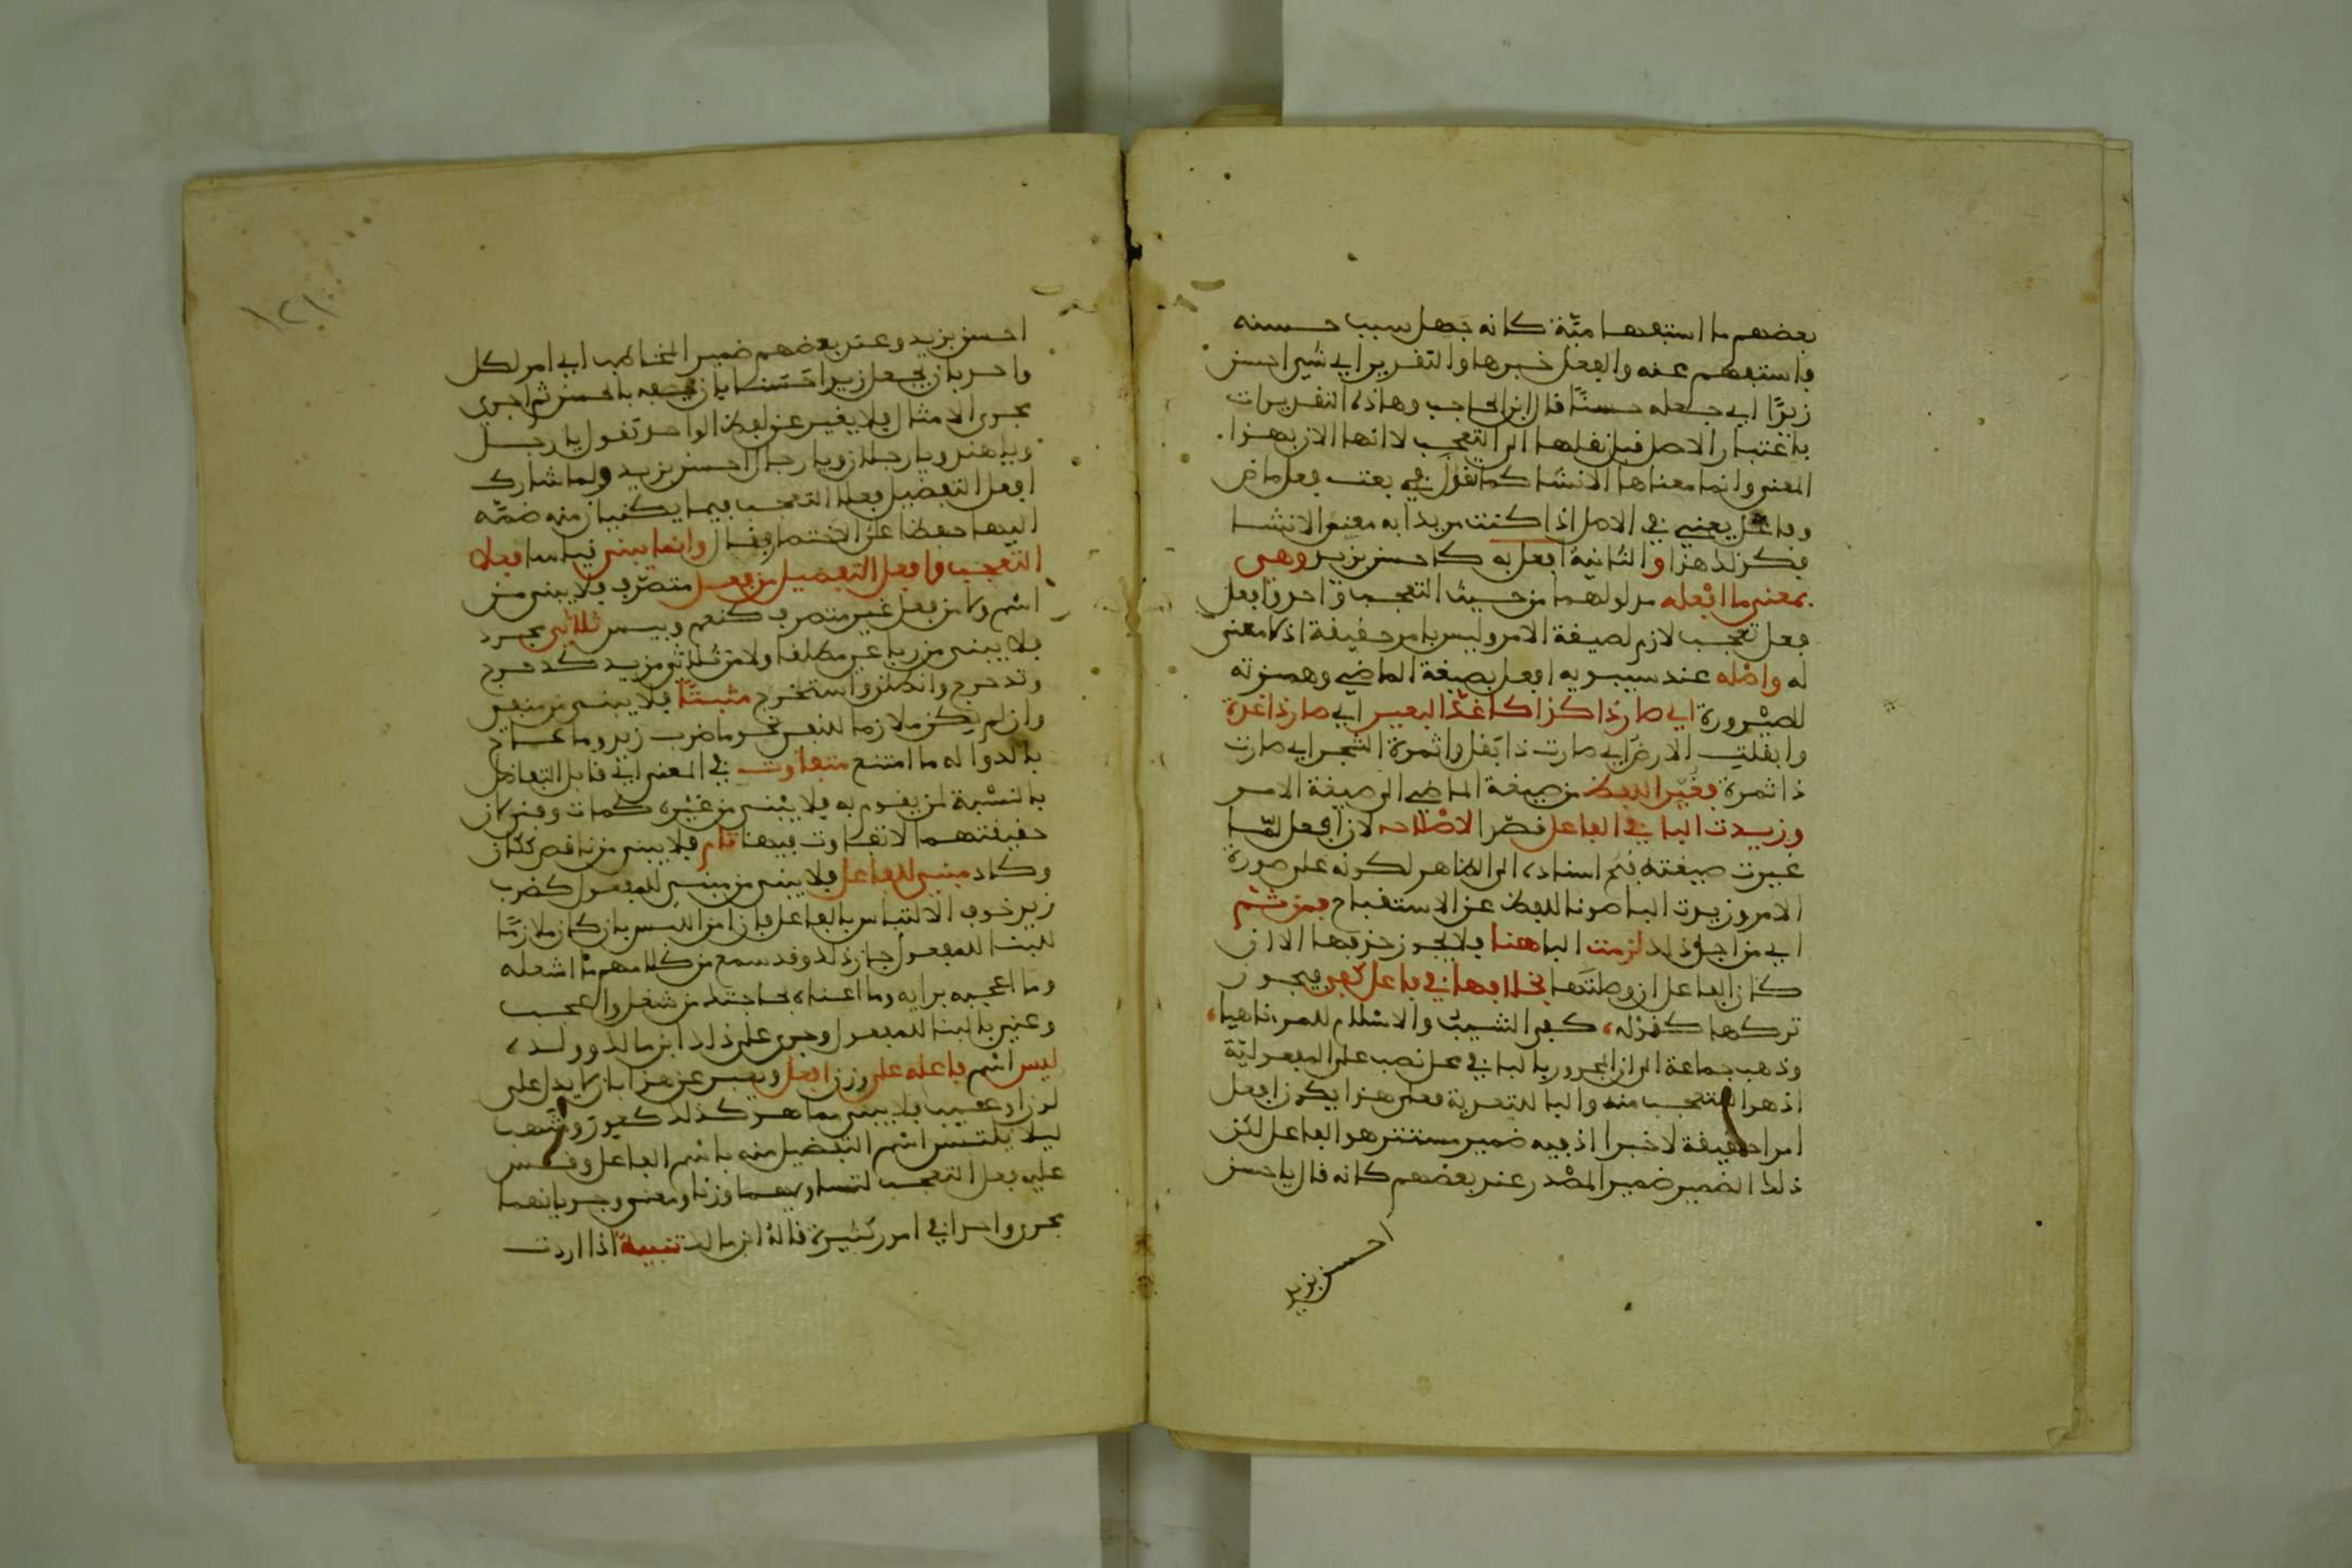 بعضهم ما استفهامية كانه جهل سبب حسنه
فاستفهم عنه والفعل خبرها والتقدير اي شيء احسن
زيدًا اي جعله حسنًا قال ابن الحاجب وهاذه التقديرات
باعتبار الاصل قبل نقلها الى التعجب لا انها الان بهذا
المعنى وانما معناها الانشا كما تقول في بعت فعل ماض
وفاعل يعني في الاصل اذا كنت مريدا به معنى الانشا
فكذلك هذا والثانية افعل به كاحسن بزيد وهي
بمعنى ما افعله مدلولهما من حيث التعجب واحد وافعل
فعل تعجب لازم لصيغة الامر وليس بامر حقيقة اذ لا معنى
له واصله عند سيبويه افعل بصيغة الماضي وهمزته
للصيرورة اي صار ذا كذا كاغدّ البعير اي صار ذا غدة
وابقلت الارض اي صارت ذا بقل واثمرة الشجر اي صارت
ذا ثمرة فغيّر اللفظ من صيغة الماضي الى صيغة الامر
وزيدت البا في الفاعل قصد الاصلاحه لان افعل لمّا
غيرت صيغته قبح اسناده الى الظاهر لكونه على صورة
الامر وزيدت البا صونا للفظ عن الاستقباح فمن ثم
اي من اجل ذلك لزمت البا هنا فلا يجوز حذفها الا ان
كان الفاعل ان وصلتها بخلافها في فاعل كفى فيجوز
تركها كقوله، كفى الشيب والاسلام للمرء ناهيا،
وذهب جماعة الى ان المجرور بالبا في محل نصب على المفعولية
اذ هو المتعجب منه والبا للتعدية فعلى هذا يكون افعل
امرا حقيقة لا خبرا اذ فيه ضمير مستتر هو الفاعل لكن
ذلك الضمير ضمير المصدر عند بعضهم كانه قال يا حسن
احسن بزيد
١٢١
احسن بزيد وعند بعضهم ضمير المخاطب اي امر لكل
واحد بان يجعل زيدا حسنا بان يصفه بالحسن ثم اجري
مجرى الامثال فلا يغير عن لفظ الواحد تقول يا رجل
ويا هند ويا رجلان ويا رجال احسن بزيد ولما شارك
افعل التفضيل فعلا التعجب فيما يبنيان منه ضمّه
اليها حفظا على الاختصار فقال وانما يبنى فيا مما فعلا
التعجب وافعل التفضيل من فعل متصرف فلا يبنى من
اسم ولا من فعل غير متصرف كنعم وبيس ثلاثي مجرد
فلا يبنى من رباعي مطلقا ولا من ثلاثي مزيد كدحرج
وتدحرج وانطلق واستخرج مثبتا فلا يبنى من منفي
وان لم يكن ملازما للنفي نحو ما ضرب زيد وما عاج
بالدوا له ما امتنع متفاوت في المعنى اي قابل التفاضل
بالنسبة لمن يقوم به فلا يبنى من غيره كمات وفنى لان
حقيقتهما لا تفاوت فيها تام فلا يبنى من ناقص ككان
وكاد مبني للفاعل فلا يبنى من مبني للمفعول كضرب
زيد خوف الالتباس بالفاعل فان امن اللبس بان كان ملازمًا
للبنا للمفعول جاز ذلك وقد سمع من كلامهم ما اشغله
وما اعجبه برايه وما اعناه بحاجتك من شغل واعجب
وعني بالبنا للمفعول وجرى على ذلك ابن مالك وولده،
ليس اسم فاعله على وزن افعل ويعبر عن هذا بان لا يدل على
لون او عيب فلا يبنى مما هو كذلك كعور وشهب
ليلا يلتبس اسم التفضيل منه باسم الفاعل وقس
عليه فعل التعجب لتساويهما وزنا ومعنى وجريانهما
مجرى واحدا في امور كثيرة قاله ابن مالك تنبيه اذا اردت